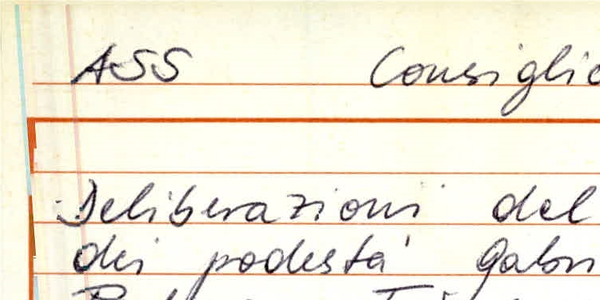 ASS Consiglio
Deliberazioni del
dei podestà Gabri